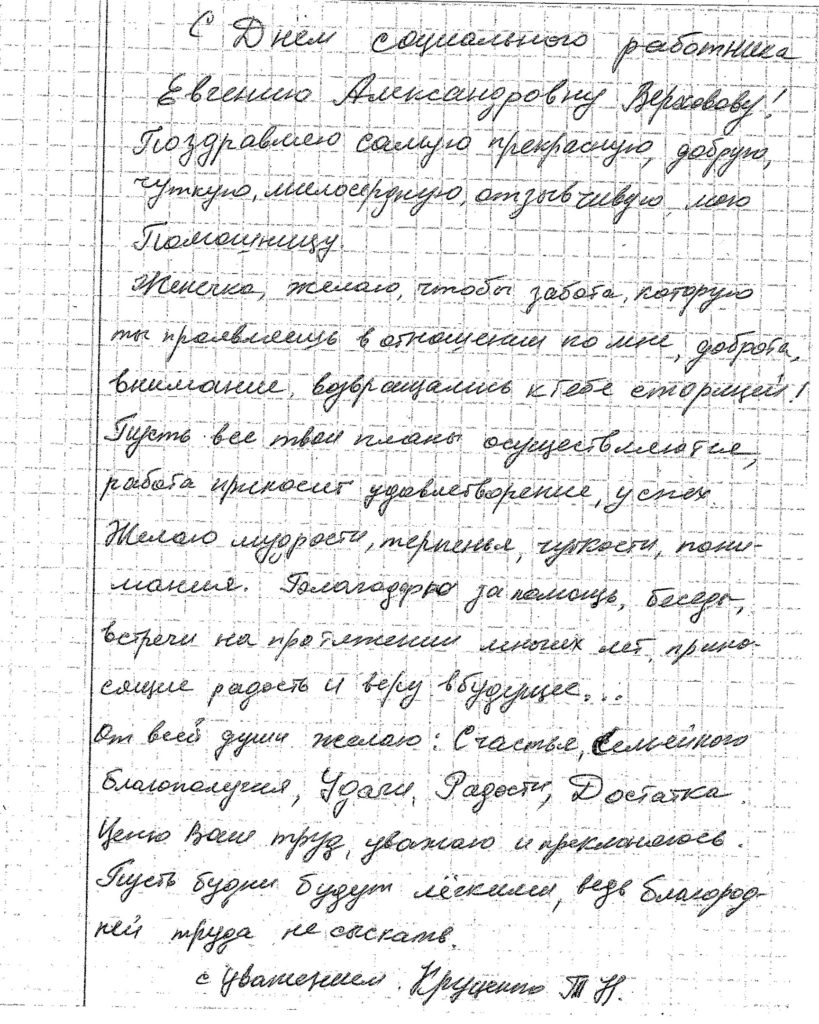 С Днём социального работника
Евгению Александровну Верховову!
Поздравляю самую прекрасную, добрую,
чуткую, милосердную, отзывчивую, мою
Помощницу.
Женечка, желаю, чтобы забота, которую
ты проявляешь в отношении ко мне, доброта,
внимание, возвращались к тебе сторицей!
Пусть все твои планы осуществляются,
работа приносит удовлетворение, успех.
Желаю мудрости, терпенья, чуткости, пони-
мания. Благодарю за помощь, беседы,
встречи на протяжении многих лет, прино-
сящие радость и веру в будущее...
От всей души желаю: Счастья, Семейного
благополучия, Удачи, Радости, Достатка.
Ценю Ваш труд, уважаю и преклоняюсь.
Пусть будни будут лёгкими, ведь благород-
ней труда не сыскать.
с уважением. Круценко Т Н.